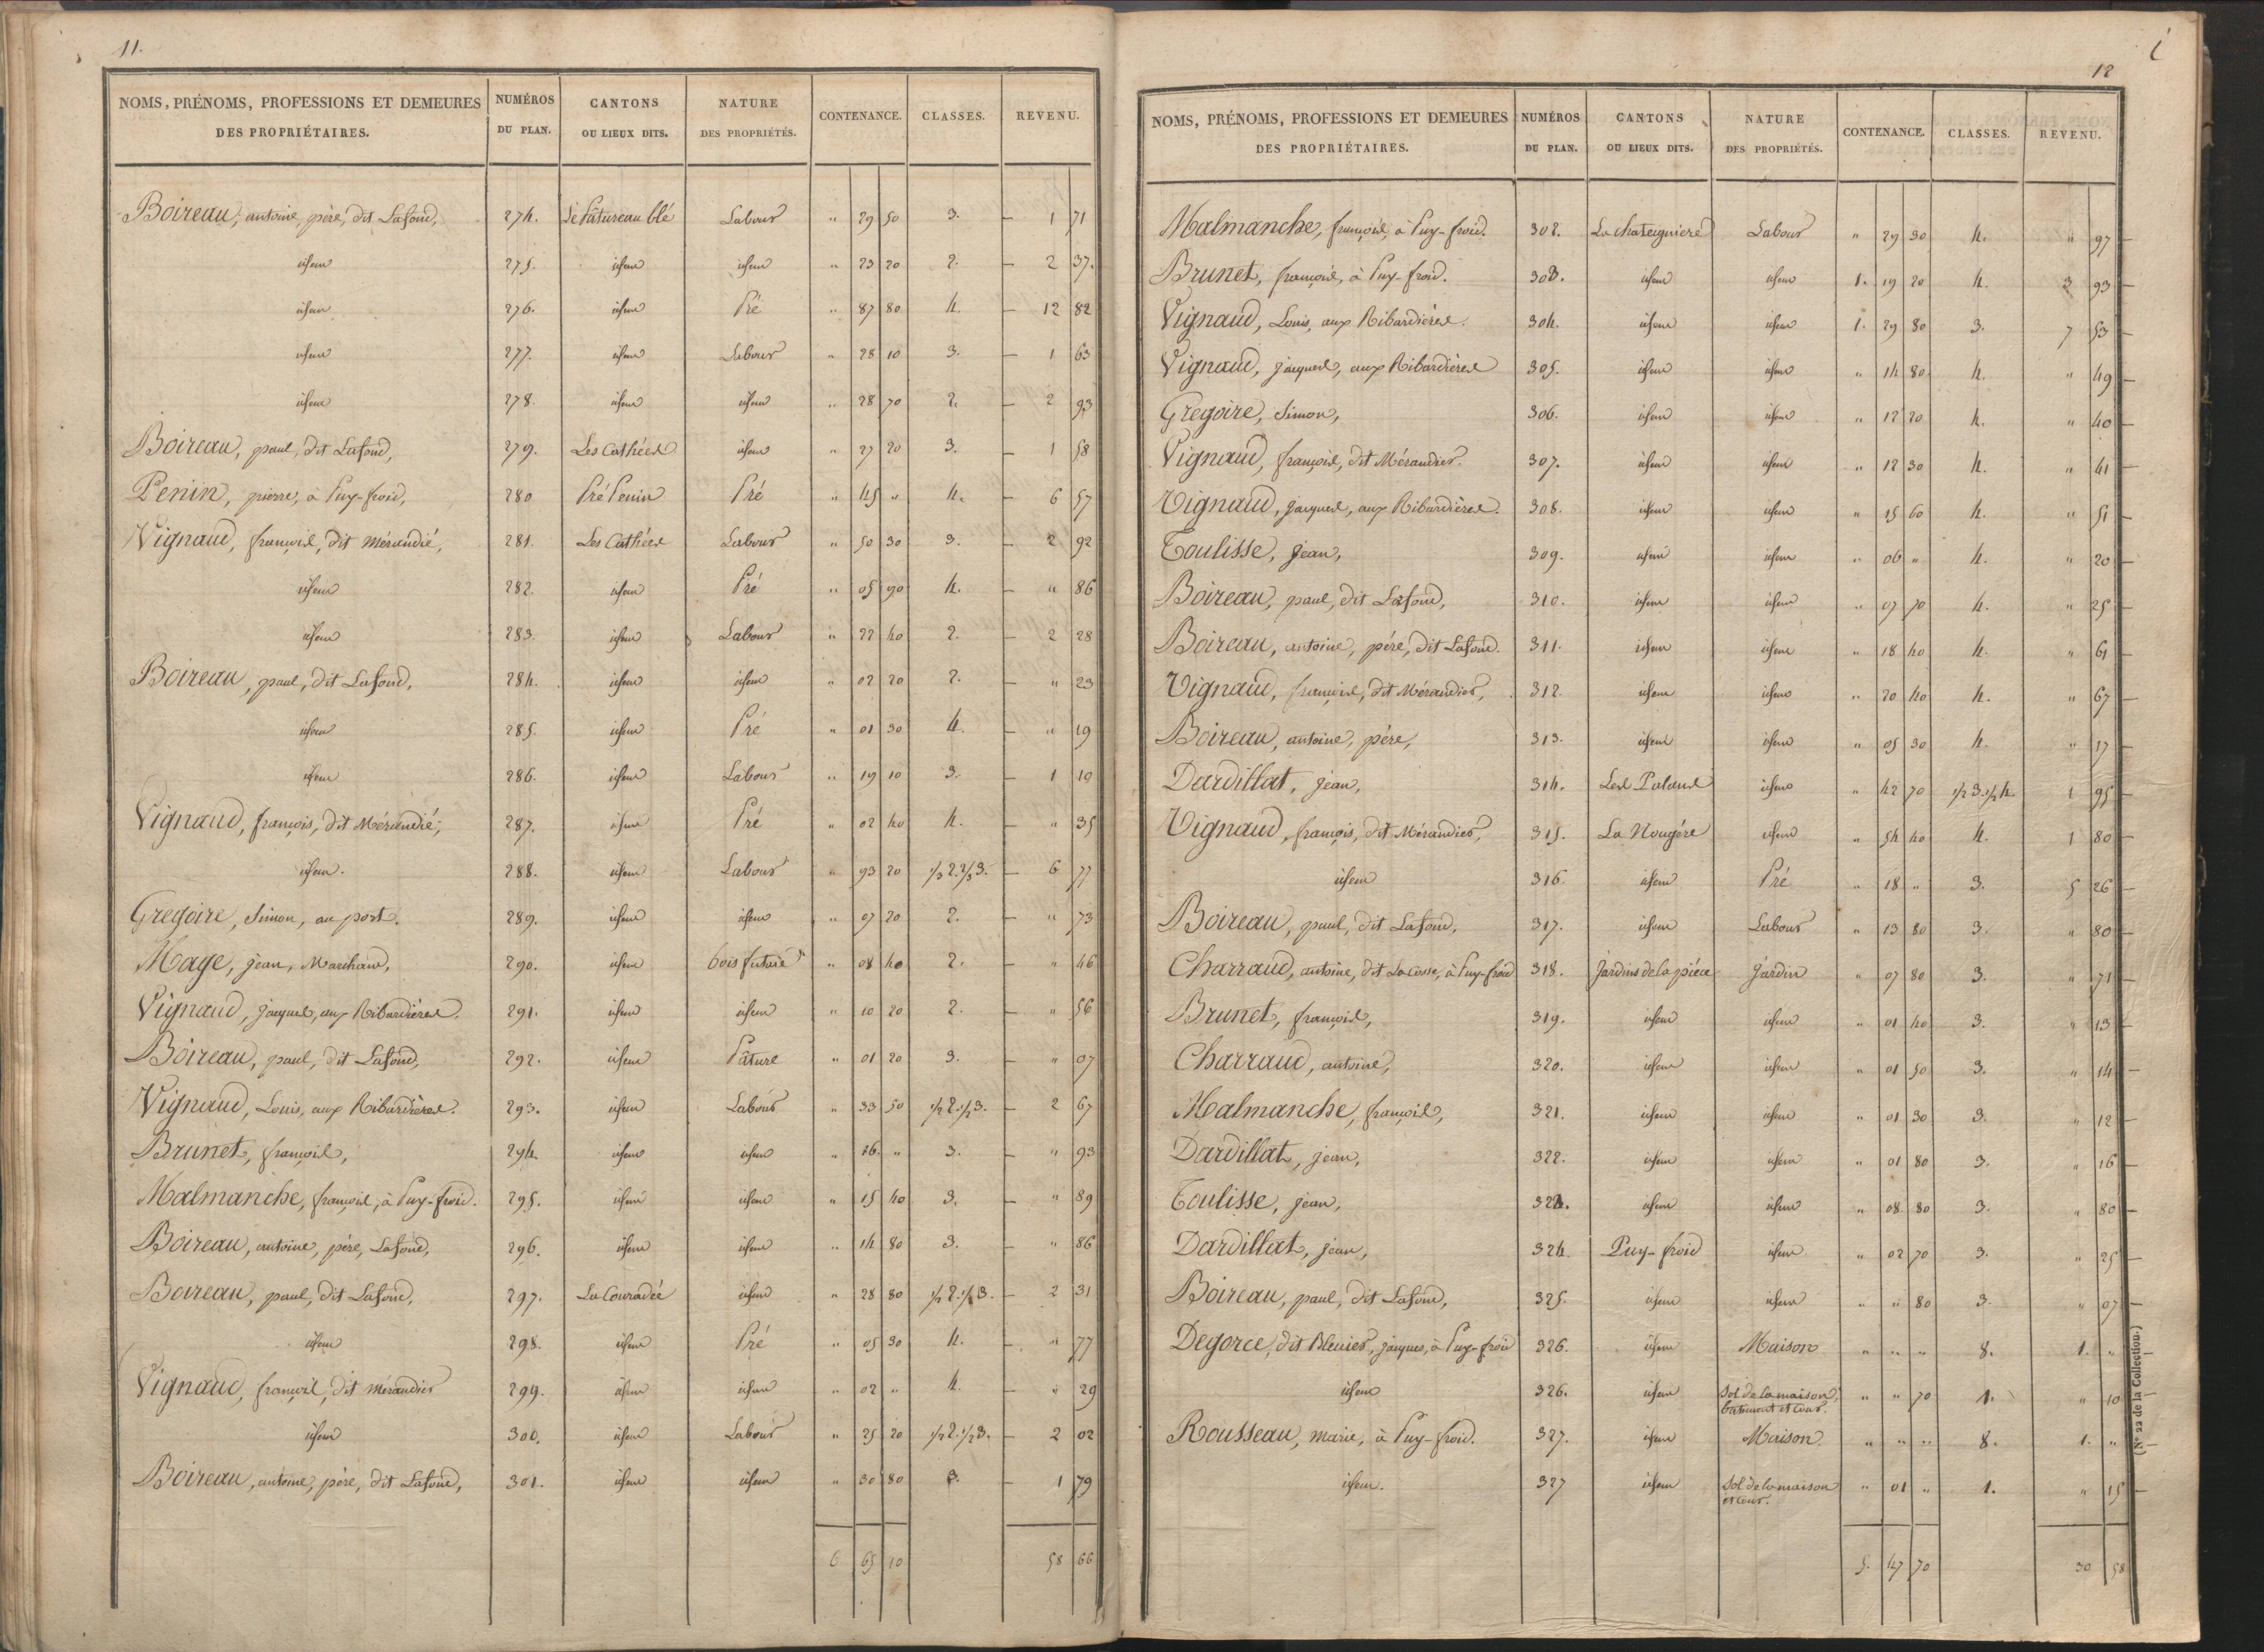 11.
NOMS, PRÉNOMS, PROFESSIONS ET DEMEURES DES PROPRIÉTAIRES. NUMÉROS DU PLAN. CANTONS OU LIEUX DITS. NATURE DES PROPRIÉTÉS. CONTENANCE. CLASSES. REVENU.
Boireau, antoine, père, dit Lafond, 274. Le Pâtureau blé Labour " 29 50 3. 1 71
idem 275. idem idem " 23 20 2. 2 37.
idem 276. idem Pré " 87 80 4. 12 82
idem 277. idem Labour " 28 10 3. 1 63
idem 278. idem idem " 28 70 2. 2 93
Boireau, paul, dit Lafond, 279. Les Cathées idem " 27 20 3. 1 58
Penin, pierre, à Puy-froid, 280 Pré Penin Pré " 45 " 4. 6 57
Vignaud, françois, dit Mérandié, 281. Les Cathées Labour " 50 30 3. 2 92
idem 282. idem Pré " 05 90 4. " 86
idem 283. idem Labour " 22 40 2. 2 28
Boireau, paul, dit Lafond, 284. idem idem " 02 20 2. " 23
idem 285. idem Pré " 01 30 4. " 19
idem 286. idem Labour " 19 10 3. 1 10
Vignaud, françois, dit Mérandié, 287. idem Pré " 02 40 4. " 35
idem. 288. idem Labour " 93 20 1/3 2. 2/3 3. 6 77
Gregoire, Simon, au port. 289. idem idem " 07 20 2. " 73
Mage, jean, Marchand, 290. idem bois futaie " 08 40 2. " 46
Vignaud, jacques, aux Ribardières. 291. idem idem " 10 20 2. " 56
Boireau, paul, dit Lafond, 292. idem Pâture " 01 20 3. " 07
Vignaud, Louis, aux Ribardières. 293. idem Labour " 33 50 1/2 2. 1/2 3. 2 67
Brunet, françois, 294. idem idem " 16 " 3. " 93
Malmanche, françois, à Puy-froid. 295. idem idem " 15 40 3. " 89
Boireau, antoine, père, Lafond, 296. idem idem " 14 80 3. " 86
Boireau, paul, dit Lafond, 297. La Couradée idem " 28 80 1/2 2. 1/2 3. 2 31
idem 298. idem Pré " 05 30 4. " 77
Vignaud, françois, dit mérandier 299. idem idem " 02 " 4. " 29
idem 300. idem Labour " 25 20 1/2 2. 1/2 3. 2 02
Boireau, antoine, père, dit Lafond, 301. idem idem " 30 80 3. 1 79
6 65 10 58 66
12
NOMS, PRÉNOMS, PROFESSIONS ET DEMEURES DES PROPRIÉTAIRES. NUMÉROS DU PLAN. CANTONS OU LIEUX DITS. NATURE DES PROPRIÉTÉS. CONTENANCE. CLASSES. REVENU.
Malmanche, françois, à Puy-froid. 302. La chateigniere Labour " 29 30 4. " 97
Brunet, françois, à Puy-froid. 303. idem idem 1. 19 20 4. 3 93
Vignaud, Louis, aux Ribardières. 304. idem idem 1. 29 80 3. 7 53
Vignaud, jacques, aux Ribardières 305. idem idem " 14 80 4. " 49
Gregoire, Simon, 306. idem idem " 12 20 4. " 40
Vignaud, françois, dit Mérandier. 307. idem idem " 12 30 4. " 41
Vignaud, jacques, aux Ribardières. 308. idem idem " 15 60 4. " 51
Toulisse, jean, 309. idem idem " 06 " 4. " 20
Boireau, paul, dit Lafond, 310. idem idem " 07 70 4. " 25
Boireau, antoine, père, dit Lafond. 311. idem idem " 18 40 4. " 61
Vignaud, françois, dit Mérandier, 312. idem idem " 20 40 4. " 67
Boireau, antoine, père, 313. idem idem " 05 30 4. " 17
Dardillat, jean, 314. Les Palans idem " 42 70 1/2 3. 1/2 4. 1 95
Vignaud, françois, dit Mérandier, 315. La Nougére idem " 54 40 4. 1 80
idem 316. idem Pré " 18 " 3. 5 26
Boireau, paul, dit Lafond, 317. idem Labour " 13 80 3. " 80
Charraud, antoine, dit Lacosse, à Puy-froid 318. Jardins de la pièce Jardin " 07 80 3. " 71
Brunet, françois, 319. idem idem " 01 40 3. " 13
Charraud, antoine, 320. idem idem " 01 50 3. " 14
Malmanche, françois, 321. idem idem " 01 30 3. " 12
Dardillat, jean, 322. idem idem " 01 80 3. " 16
Toulisse, jean, 323. idem idem " 08 80 3. " 80
Dardillat, jean, 324. Puy-froid idem " 02 70 3. " 25
Boireau, paul, dit Lafond, 325. idem idem " " 80 3. " 07
Degorce, dit Bleuier, jacques, à Puy-froid 326. idem Maison " " " 8. 1. "
idem 326. idem Sol de la maison, batiment et cour. " " 70 1. " 10
Rousseau, marie, à Puy-froid. 327. idem Maison " " " 8. 1. "
idem. 327 idem Sol de la maison et cour. " 01 " 1. " 15
5. 47 70 30 58
(N° 22 de la Collection.)